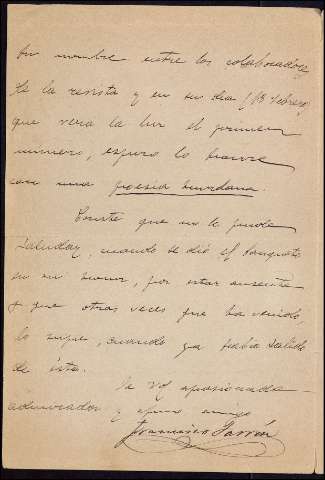 su nombre entre los colaboradores
de la revista y en su dia (15 febrero)
que vera la luz el primer
numero, espero lo honre
con una poesia hurdana.
Conste que no le pude
saludar, cuando se dió el banquete
en su honor, por estar ausente
y que otras veces que ha venido,
lo supe, cuando ya había salido
de ésta.
de Vd apasionado
admirador y amigo
Francisco